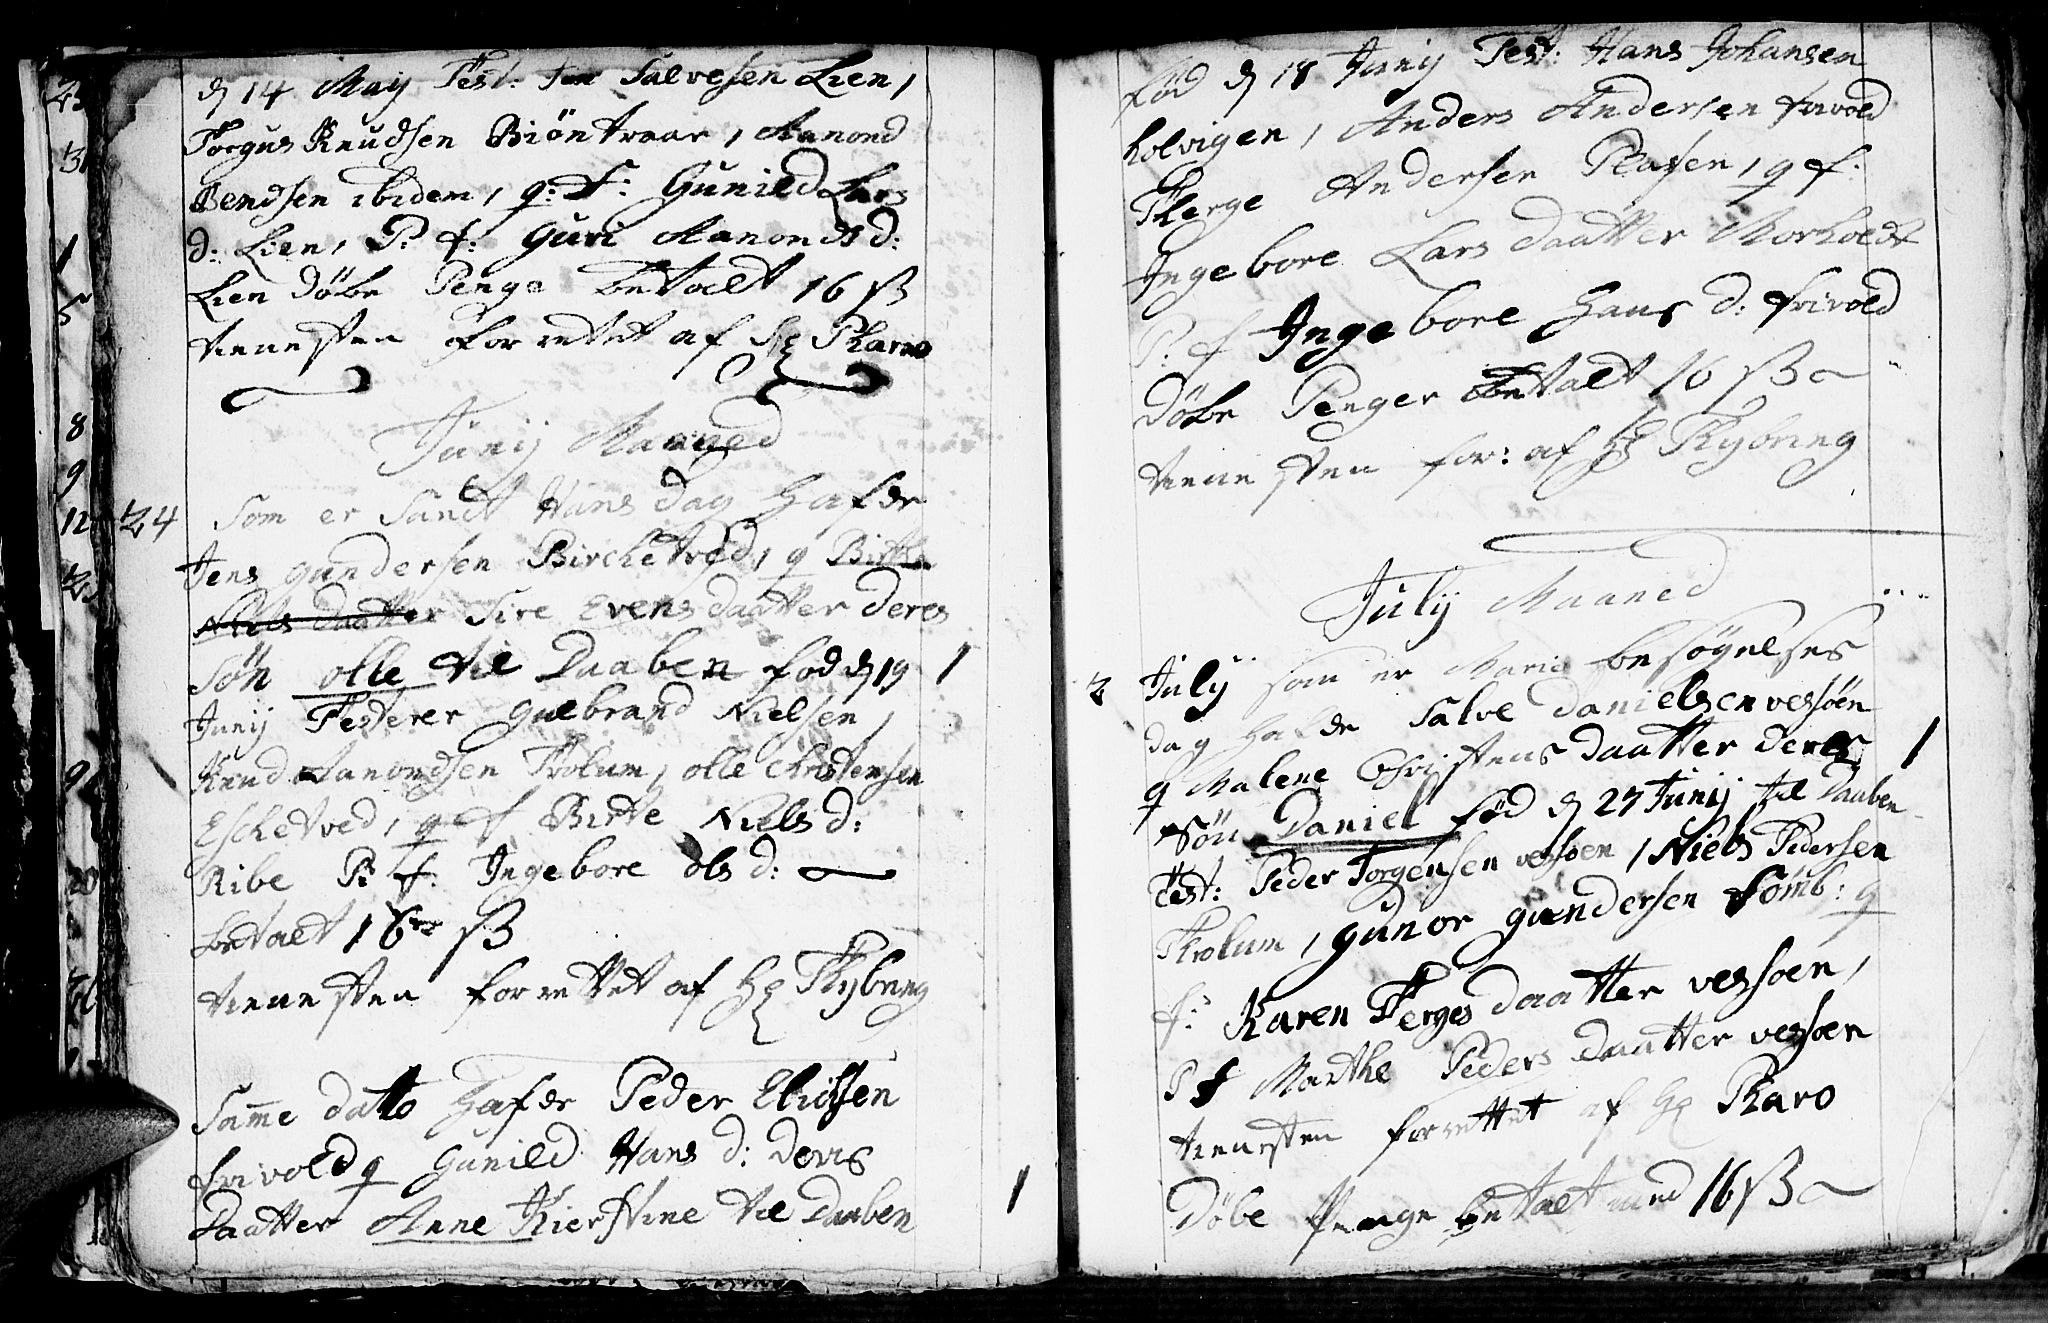 d 14 Maij Test: Jon Salvesen Lien,
Torgus Knudsen Biöntraar, Aanond
Bendsen ibidem, q: f: Gunild Lars
d: Lien, P: f: Guri Aanonds d:
Lien döbe Penge betalt 16 ß
tienesten forrettet af Hr Pharo
Junij Maaned
24 som er Sanct Hans dag hafde
Jens Gundersen Birchetved, q Birthe
Niels daatter Sire Evens daatter deres
Sön olle til Daaben föd d 19 1
Junij Festerer Gulbrand Nielsen,
Knud Aanondsen Trolum, olle Christensen
Eschetved, q f Birte Niels d:
Ribe P: f: Ingebore ols d:
betalt 16 ß
tienesten forrettet af Hr Thybring
Samme dato hafde Peder Elichsen
frivold q Gunild Hans d: deris
Daatter Anne Kierstine til Daaben 1
föd d 18 Junij Test: Hans Johansen
holvigen, Anders Andersen frivold
Therge Andersen Plasen, q f.
Ingebore Lars daatter Morholt
P: f Ingebore Hans d: frivold
döbe Penger betalt 16 ß
tienesten for: af Hr Thybring
Julij Maaned
2 Julij som er Mariæ besögelses
dag hafde Salve Danielsen vessöen
q Malene Christens daatter deres 1
Sön Daniel föd d 27 Junij til Daaben
Test: Peder Torgensen vessoen, Niels Pedersen
Trolum, Gunor Gundersen Sömb: q
f: Karen Terges daatter vessoen,
P f Marthe Peders daatter vessoen
tienesten forrettet af Hr Pharo
Döbe Penge betalt med 16 ß